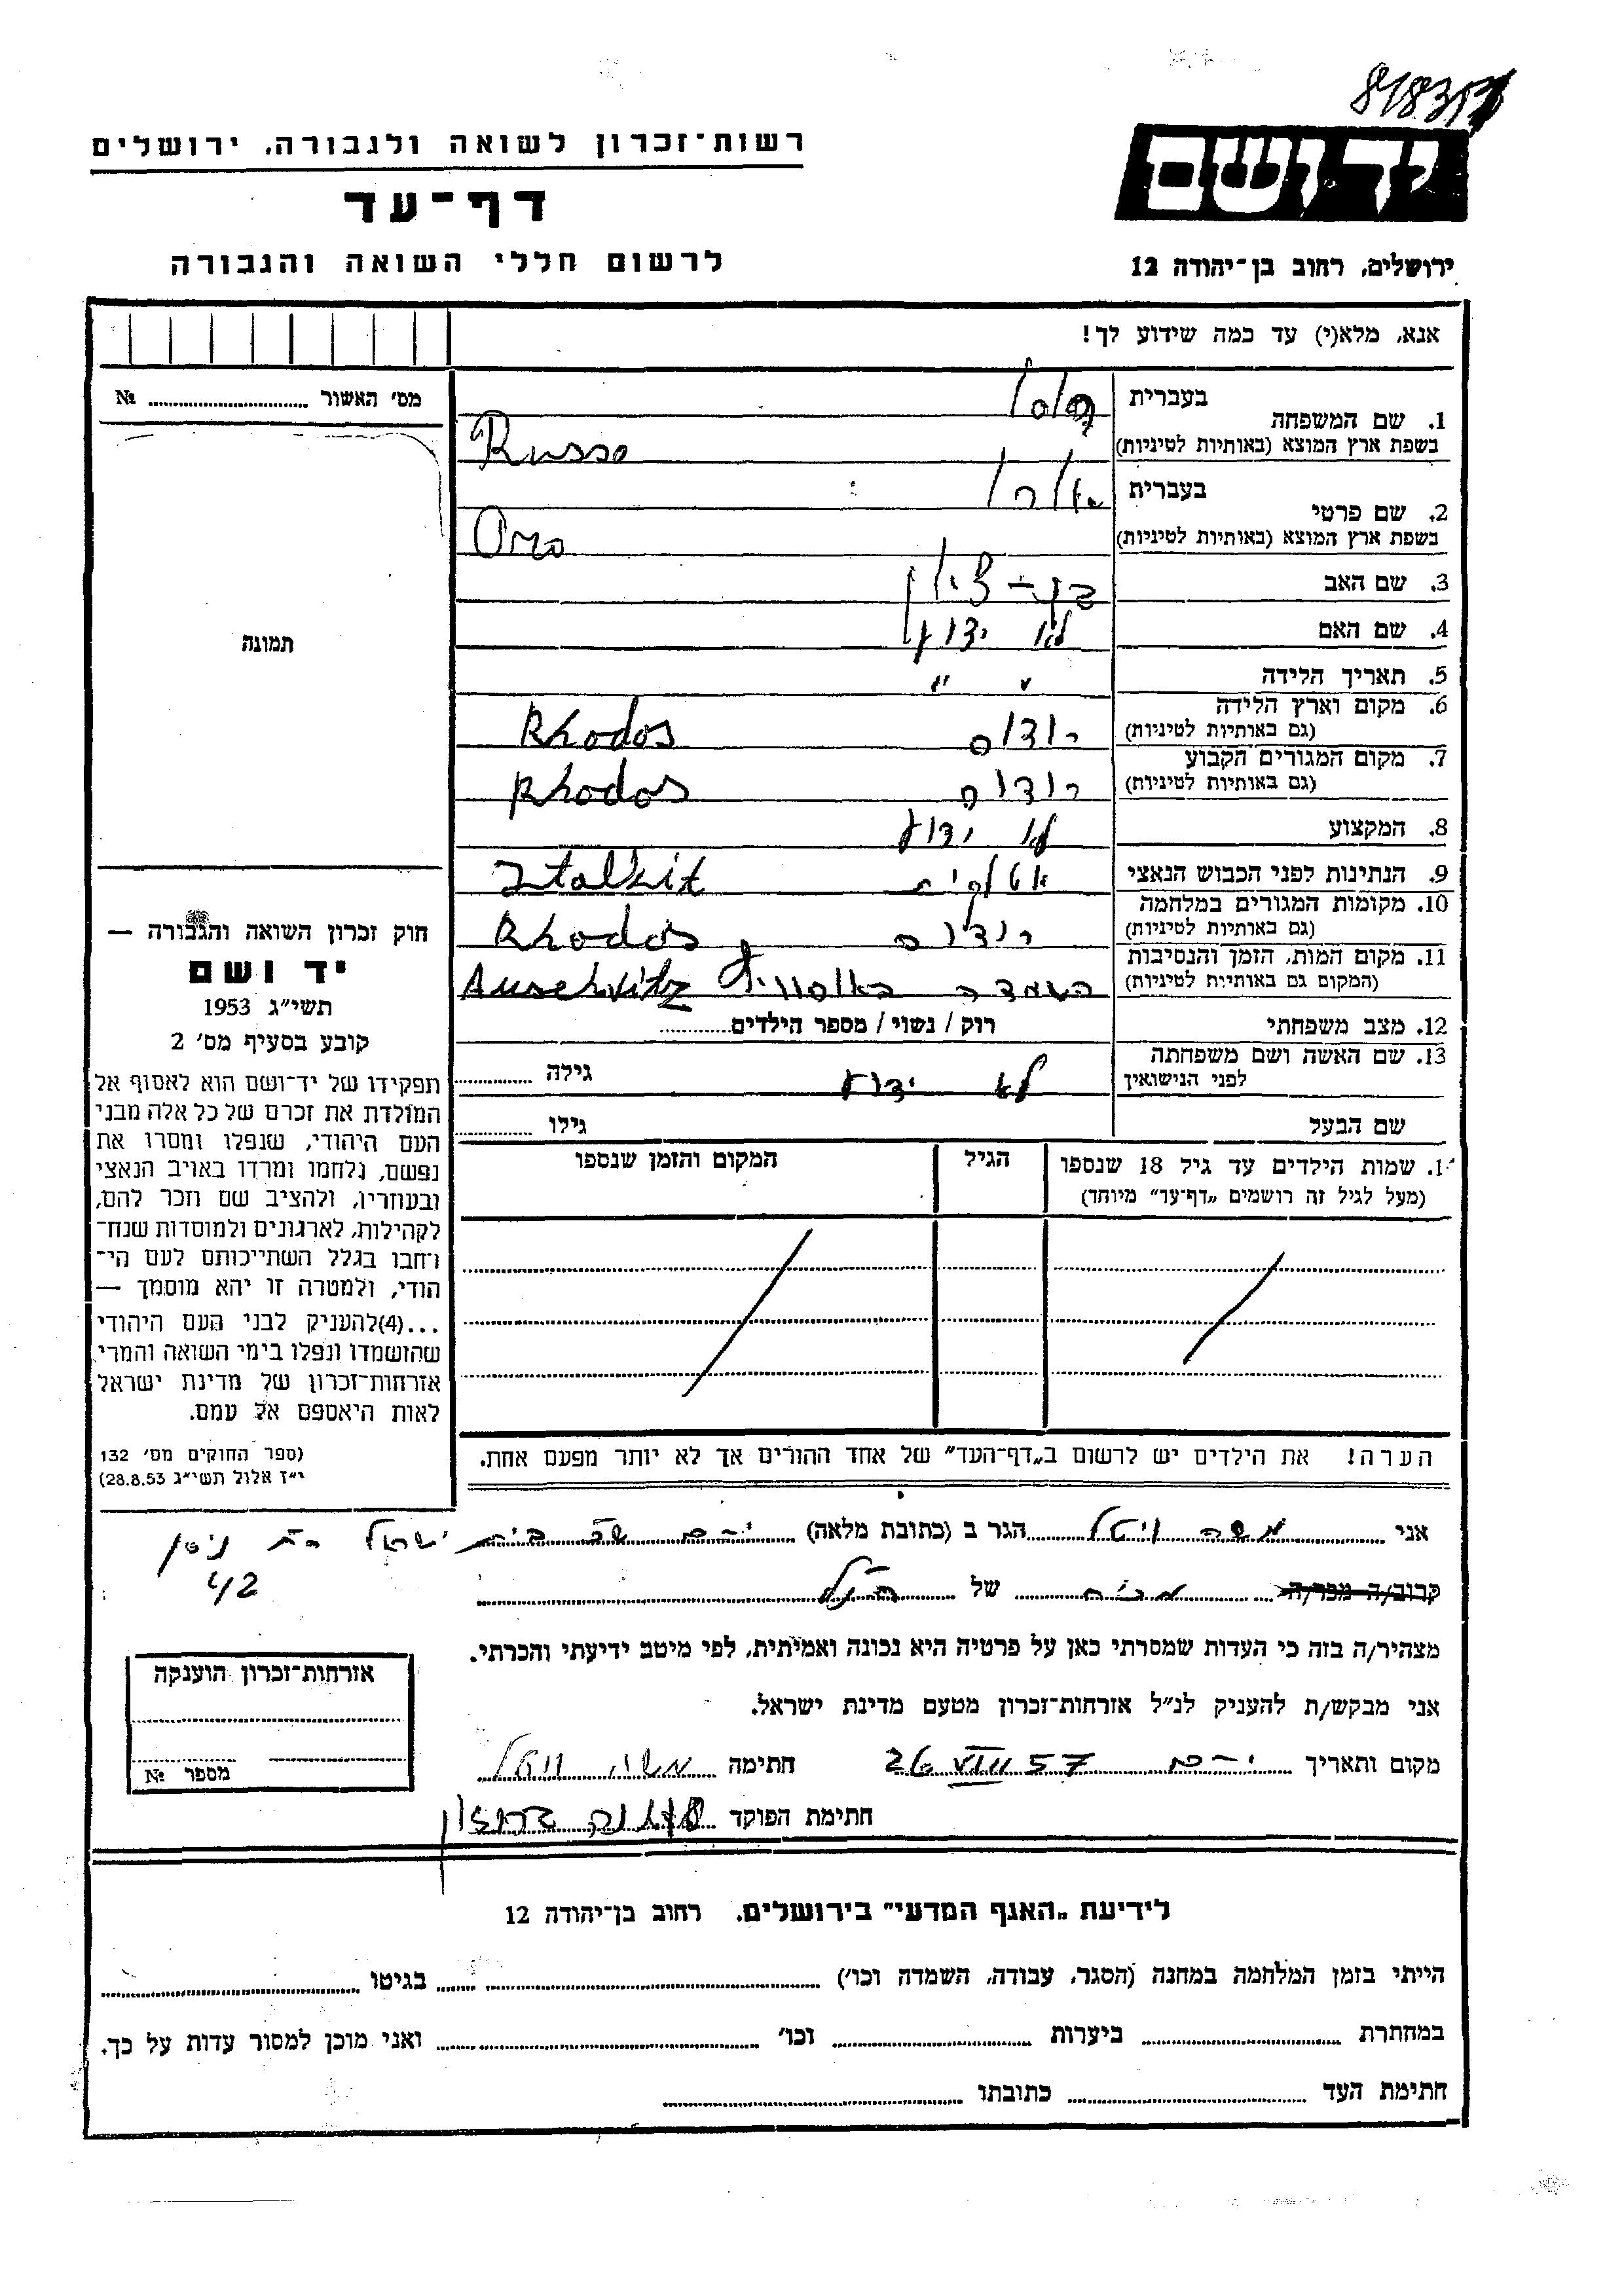 רשות־זכרון לשואה ולגבורה, ירושלים
דף־עד
לרשום חללי השואה והגבורה
יד ושם
ירושלים, רחוב בן־יהודה 12
אנא, מלא(י) עד כמה שידוע לך!
מס׳ האשור № ........
תמונה
1. שם המשפחה בעברית רוסו
בשפת ארץ המוצא (באותיות לטיניות) Russo
2. שם פרטי בעברית אורו
בשפת ארץ המוצא (באותיות לטיניות) Oro
3. שם האב בן-ציון
4. שם האם לא ידוע
5. תאריך הלידה " "
6. מקום וארץ הלידה (גם באותיות לטיניות) רודוס Rhodos
7. מקום המגורים הקבוע (גם באותיות לטיניות) רודוס Rhodos
8. המקצוע לא ידוע
9. הנתינות לפני הכבוש הנאצי איטלקית Italkit
10. מקומות המגורים במלחמה (גם באותיות לטיניות) רודוס Rhodos
11. מקום המות, הזמן והנסיבות (המקום גם באותיות לטיניות) השמדה באוסוויץ Auschvitz
12. מצב משפחתי רוק / נשוי / מספר הילדים........
13. שם האשה ושם משפחתה לפני הנישואין לא ידוע גילה ........
שם הבעל גילו ........
1. שמות הילדים עד גיל 18 שנספו
(מעל לגיל זה רושמים „דף־עד" מיוחד)
הגיל
המקום והזמן שנספו
הערה! את הילדים יש לרשום ב„דף־העד" של אחד ההורים אך לא יותר מפעם אחת.
חוק זכרון השואה והגבורה —
יד ושם
תשי״ג 1953
קובע בסעיף מס׳ 2
תפקידו של יד־ושם הוא לאסוף אל
המולדת את זכרם של כל אלה מבני
העם היהודי, שנפלו ומסרו את
נפשם, נלחמו ומרדו באויב הנאצי
ובעוזריו, ולהציב שם וזכר להם,
לקהילות, לארגונים ולמוסדות שנח־
רבו בגלל השתייכותם לעם הי־
הודי, ולמטרה זו יהא מוסמך —
...(4)להעניק לבני העם היהודי
שהושמדו ונפלו בימי השואה והמרי
אזרחות־זכרון של מדינת ישראל
לאות היאספם אל עמם.
(ספר החוקים מס׳ 132
י״ז אלול תשי״ג 28.8.53)
אני משה ויטל הגר ב (כתובת מלאה) י-ם שכ בית ישראל רח ניסן
42
קרוב/ה מכר/ה מכיר של הנ״ל
מצהיר/ה בזה כי העדות שמסרתי כאן על פרטיה היא נכונה ואמיתית, לפי מיטב ידיעתי והכרתי.
אני מבקש/ת להעניק לנ״ל אזרחות־זכרון מטעם מדינת ישראל.
מקום ותאריך י-ם 26 VIII 57 חתימה משה ויטל
חתימת הפוקד
אזרחות־זכרון הוענקה
מספר №
לידיעת „האגף המדעי" בירושלים. רחוב בן־יהודה 12
הייתי בזמן המלחמה במחנה (הסגר, עבודה, השמדה וכו׳) ........ בגיטו ........
במחתרת ........ ביערות ........ וכו׳ ........ ואני מוכן למסור עדות על כך.
חתימת העד ........ כתובתו ........